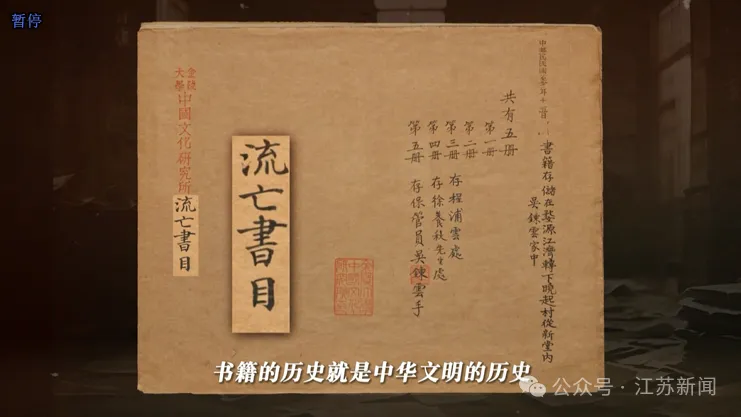 暂停
中華民國
書籍存儲在婺源江灣轉下曉起村從新堂內
吳鍊雲家中
共有五册
第一册
第二册
第三册 存程浦雲處
第四册 存徐養秋先生處
第五册 存保管員吳鍊雲手
流亡書目
金陵
大學
中國文化研究所
流亡書目
书籍的历史就是中华文明的历史
公众号·江苏新闻